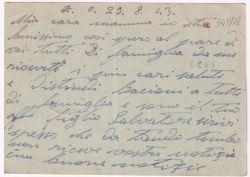 29.8.43.
Mia cara mamma io sto
benissimo così spero al pare di
voi tutti di famiglia da me
ricevete i più cari saluti
e distinti bacioni a tutti
di famiglia e sono il tuo
figlio Salvatore
presto che da tanto tempo
non ricevo vostre notizie
buone notizie